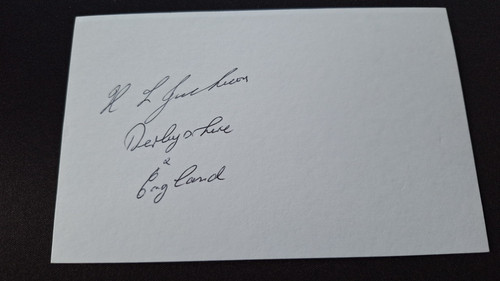 H L Jackson
Derbyshire
&
England